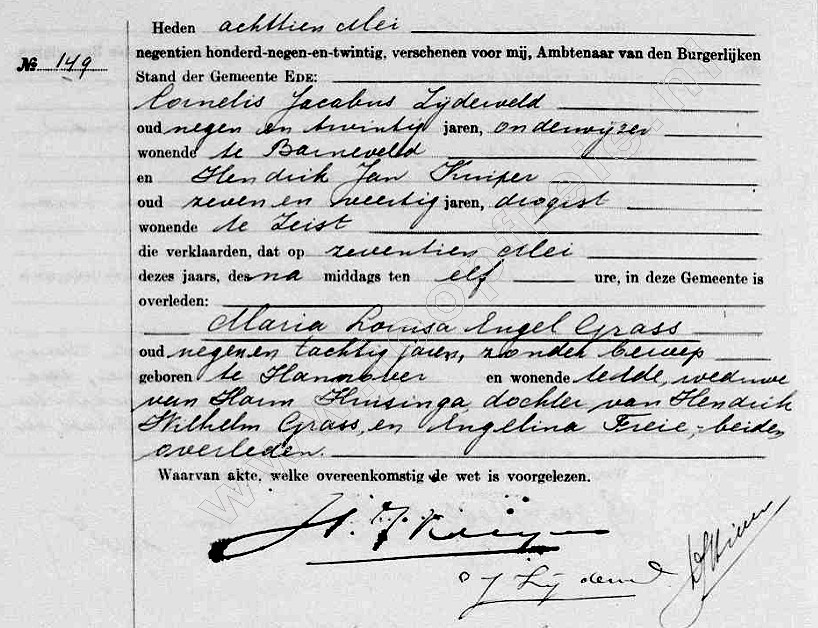 Heden achttien Mei
negentien honderd-negen-en-twintig, verschenen voor mij, Ambtenaar van den Burgerlijken
No 149
Stand der Gemeente EDE:
Cornelis Jacobus Zijderveld
oud negen en twintig jaren, onderwijzer
wonende te Barneveld
en Hendrik Jan Kuiper
oud zeven en veertig jaren, drogist
wonende te Zeist
die verklaarden, dat op zeventien Mei
dezes jaars, des na middags ten elf ure, in deze Gemeente is
overleden:
Maria Louisa Engel Grass
oud negen en tachtig jaren, zonder beroep
geboren te Hannover en wonende te Ede, weduwe
van Harm Kruisinga, dochter van Hendrik
Wilhelm Grass, en Engelina Freie, beiden
overleden.
Waarvan akte, welke overeenkomstig de wet is voorgelezen.